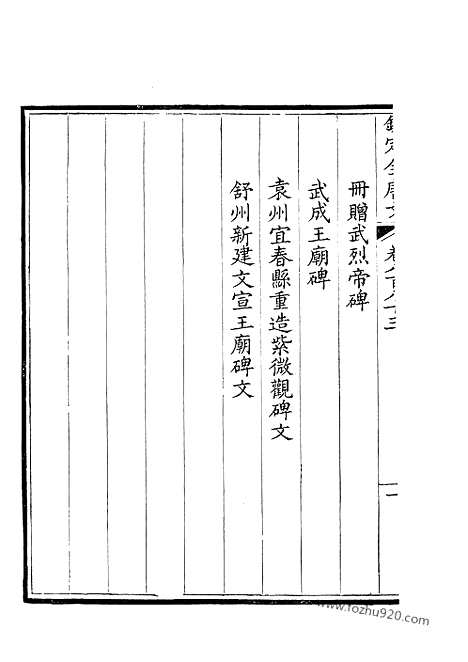 欽定全唐文 卷八百八十三 一
冊贈武烈帝碑
武成王廟碑
袁州宜春縣重造紫微觀碑文
舒州新建文宣王廟碑文
www.fozhu920.com